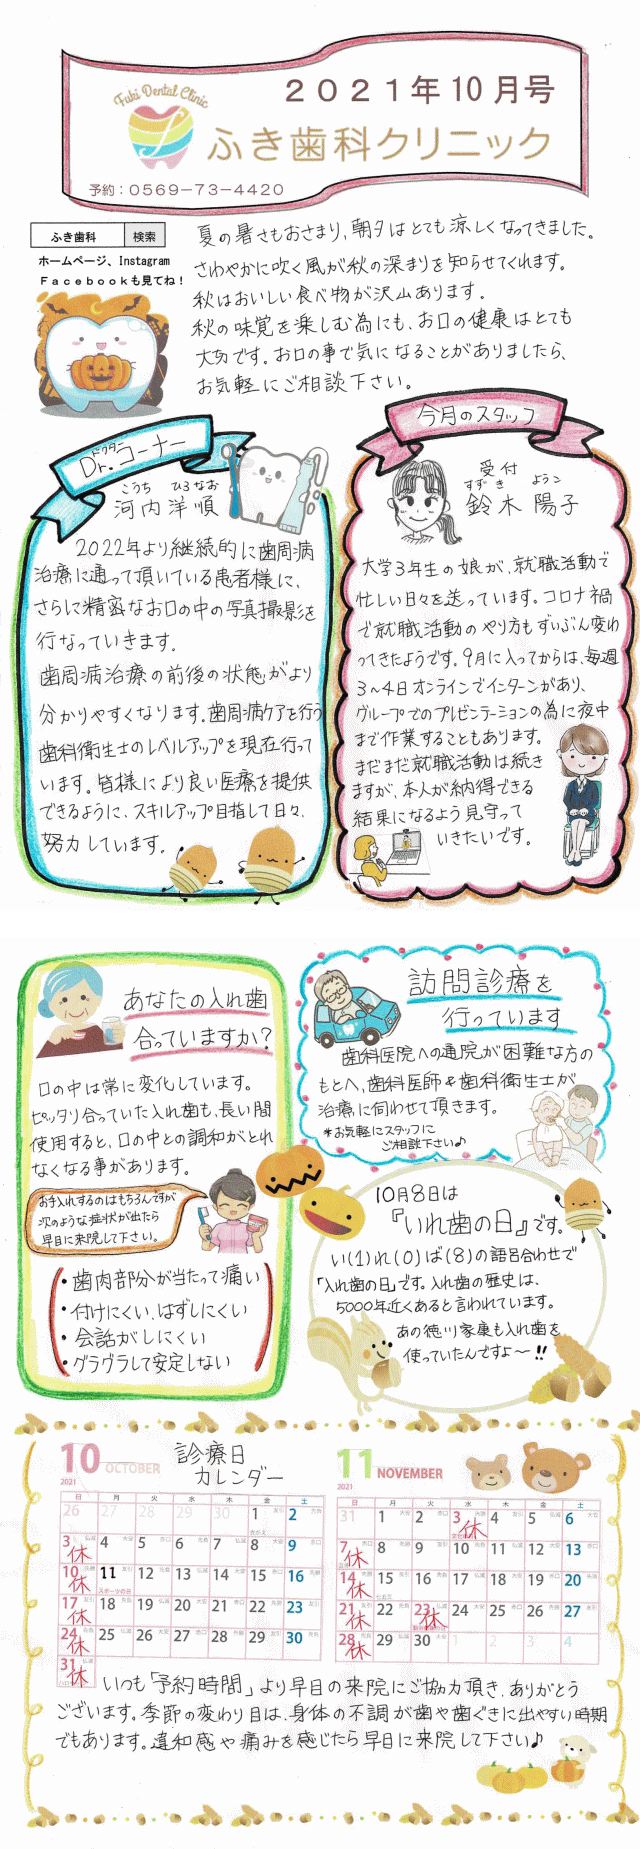 Fuki Dental Clinic
2021年10月号
ふき歯科クリニック
予約：0569-73-4420
ふき歯科 検索
ホームページ、Instagram
Facebookも見てね！
夏の暑さもおさまり、朝夕はとても涼しくなってきました。
さわやかに吹く風が秋の深まりを知らせてくれます。
秋はおいしい食べ物が沢山あります。
秋の味覚を楽しむ為にも、お口の健康はとても
大切です。お口の事で気になることがありましたら、
お気軽にご相談下さい。
ドクター
Dr.コーナー
こうち ひろなお
河内 洋順
2022年より継続的に歯周病
治療に通って頂いている患者様に、
さらに精密なお口の中の写真撮影を
行なっていきます。
歯周病治療の前後の状態がより
分かりやすくなります。歯周病ケアを行う
歯科衛生士のレベルアップを現在行って
います。皆様により良い医療を提供
できるように、スキルアップ目指して日々、
努力しています。
今月のスタッフ
受付
すずき ようこ
鈴木 陽子
大学3年生の娘が、就職活動で
忙しい日々を送っています。コロナ禍
で就職活動のやり方もずいぶん変わ
ってきたようです。9月に入ってからは、毎週
3～4日オンラインでインターンがあり、
グループでのプレゼンテーションの為に夜中
まで作業することもあります。
まだまだ就職活動は続き
ますが、本人が納得できる
結果になるよう見守って
いきたいです。
あなたの入れ歯
合っていますか？
口の中は常に変化しています。
ピッタリ合っていた入れ歯も、長い間
使用すると、口の中との調和がとれ
なくなる事があります。
お手入れするのはもちろんですが
次のような症状が出たら
早目に来院して下さい。
・歯肉部分が当たって痛い
・付けにくい、はずしにくい
・会話がしにくい
・グラグラして安定しない
訪問診療を
行っています
歯科医院への通院が困難な方の
もとへ、歯科医師や歯科衛生士が
治療に伺わせて頂きます。
*お気軽にスタッフに
ご相談下さい♪
10月8日は
『いれ歯の日』です。
い(1)れ(0)ば(8)の語呂合わせで
「入れ歯の日」です。入れ歯の歴史は、
5000年近くあると言われています。
あの徳川家康も入れ歯を
使っていたんですよ～!!
診療日
カレンダー
10 OCTOBER
2021
日 月 火 水 木 金 土
26 27 28 29 30 1 2
3 休 4 5 6 7 8 9
10 休 11 12 13 14 15 16
スポーツの日
17 休 18 19 20 21 22 23
24 休 25 26 27 28 29 30
31 休
11 NOVEMBER
2021
日 月 火 水 木 金 土
31 1 2 3 休 4 5 6
7 休 8 9 10 11 12 13
14 休 15 16 17 18 19 20
21 休 22 23 休 24 25 26 27
28 休 29 30 1 2 3 4
いつも「予約時間」より早目の来院にご協力頂き、ありがとう
ございます。季節の変わり目は、身体の不調が歯や歯ぐきに出やすい時期
でもあります。違和感や痛みを感じたら早目に来院して下さい♪